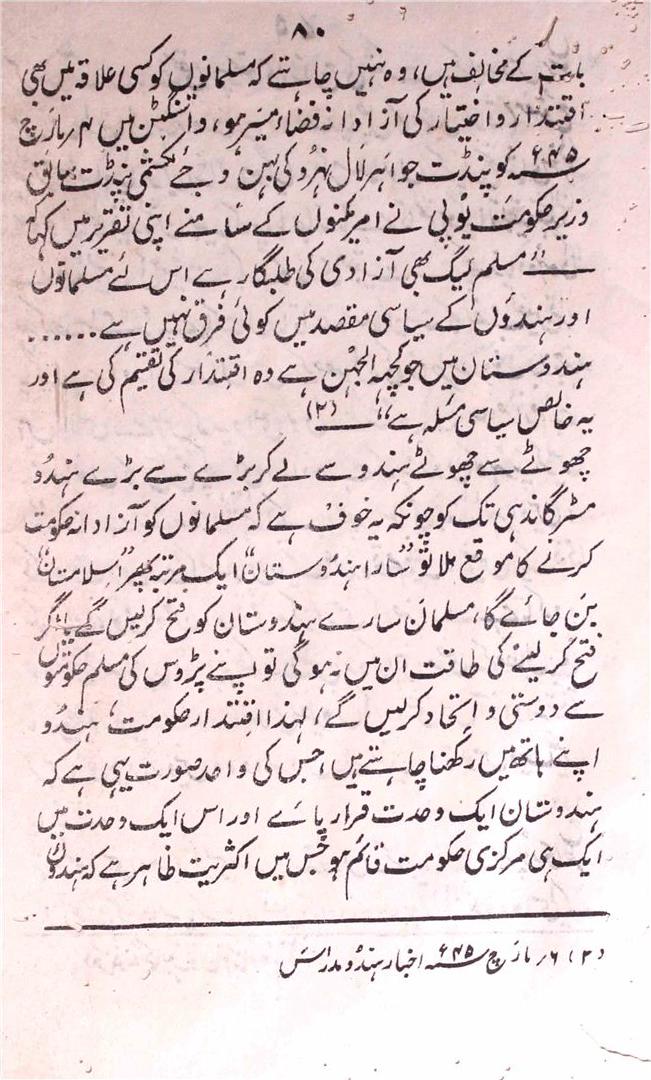 ۸۰
باہتم کے مخالف ہیں، وہ نہیں چاہتے کہ مسلمانوں کو کسی علاقہ میں بھی
اقتدار و اختیار کی آزادانہ فضاء میسر ہو، واشنگٹن میں ۴ر مارچ
۴۵ء؁ کو پنڈت جواہر لال نہرو کی بہن وجے لکشمی پنڈت سابق
وزیر حکومت یوپی نے امریکنوں کے سامنے اپنی تقریر میں کہا
—"مسلم لیگ بھی آزادی کی طلبگار ہے اس لئے مسلمانوں
اور ہندوؤں کے سیاسی مقصد میں کوئی فرق نہیں ہے ......
ہندوستان میں جو کچھ الجھن ہے وہ اقتدار کی تقسیم کی ہے اور
یہ خالص سیاسی مسئلہ ہے" — (۲)
چھوٹے سے چھوٹے ہندو سے لے کر بڑے سے بڑے ہندو
مسٹر گاندھی تک کو چونکہ یہ خوف ہے کہ مسلمانوں کو آزادانہ حکومت
کرنے کا موقع ملا تو "سارا ہندوستان" ایک مرتبہ پھر "اسلامستان"
بن جائے گا، مسلمان سارے ہندوستان کو فتح کرلیں گے، اگر
فتح کرلینے کی طاقت ان میں نہ ہوگی تو اپنے پڑوس کی مسلم حکومتوں
سے دوستی و اتحاد کرلیں گے، لہذا اقتدار حکومت، ہندو
اپنے ہاتھ میں رکھنا چاہتے ہیں، جس کی واحد صورت یہی ہے کہ
ہندوستان ایک وحدت قرار پائے اور اس ایک وحدت میں
ایک ہی مرکزی حکومت قائم ہو جس میں اکثریت ظاہر ہے کہ ہندوؤں
(۲) ۶ر مارچ ۴۵ء؁ اخبار ہندو مدراس